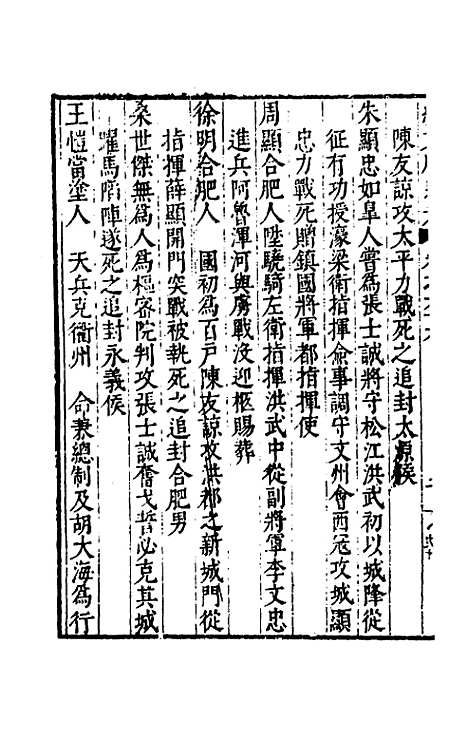 陳友諒攻太平力戰死之追封太原侯
朱顯忠如臯人嘗為張士誠將守松江洪武初以城降從
征有功授濠梁衛指揮僉事調守文州會西冦攻城顯
忠力戰死贈鎮國將軍都指揮使
周顯合肥人陞驍騎左衛指揮洪武中從副將軍李文忠
進兵阿魯渾河與虜戰没迎柩賜葬
徐明合肥人 國初為百戶陳友諒攻洪都之新城門從
指揮薛顯開門突戰被執死之追封合肥男
桑世傑無為人為樞密院判攻張士誠奮戈誓必克其城
躍馬陷陣遂死之追封永義侯
王愷當塗人 天兵克衢州 命兼總制及胡大海為行